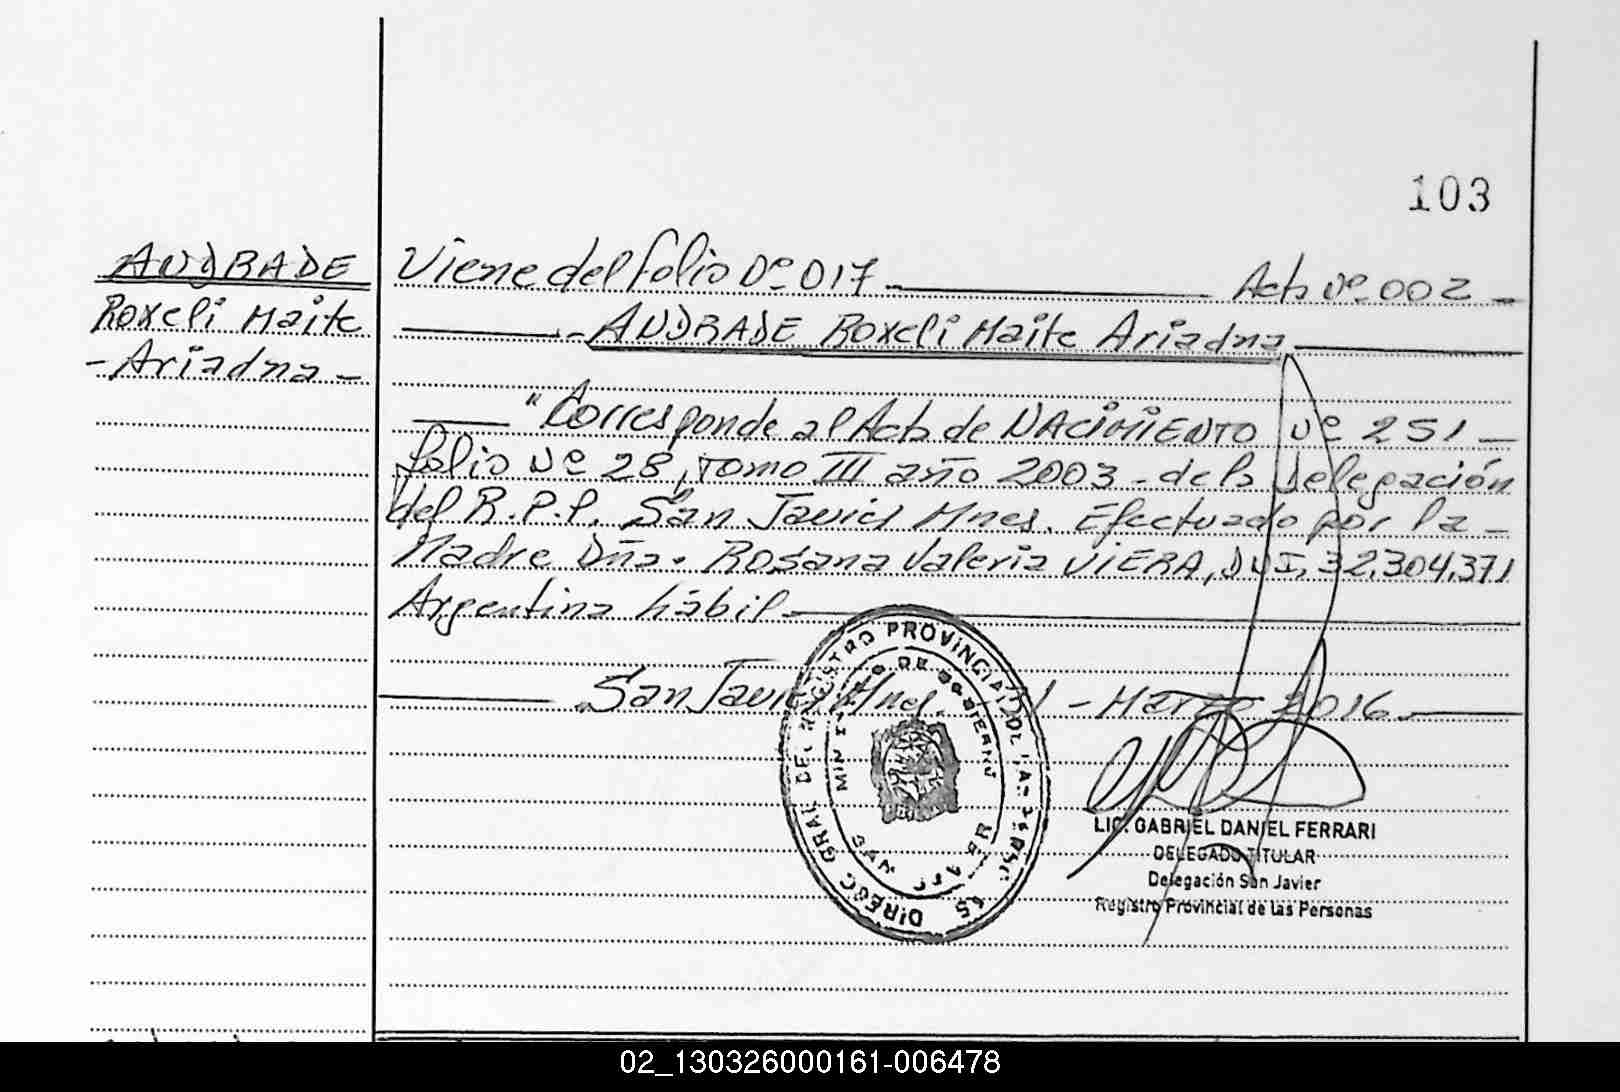 103
ANDRADE
Roxeli Maite
- Ariadna -
Viene del folio Nº 017 Acta Nº 002
ANDRADE Roxeli Maite Ariadna
"Corresponde al Acta de NACIMIENTO Nº 251
folio Nº 28, Tomo III año 2003 - de la Delegación
del R.P.P. San Javier Mnes. Efectuado por la
Madre Dña. Rosana Valeria VIERA, DNI. 32.304.371
Argentina hábil
San Javier Mnes. - Marzo 2016
DIRECC GRAL DEL REGISTRO PROVINCIAL DE LAS PERSONAS
MINISTERIO DE GOBIERNO
SAN JAVIER
LIC. GABRIEL DANIEL FERRARI
DELEGADO TITULAR
Delegación San Javier
Registro Provincial de las Personas
02_130326000161-006478